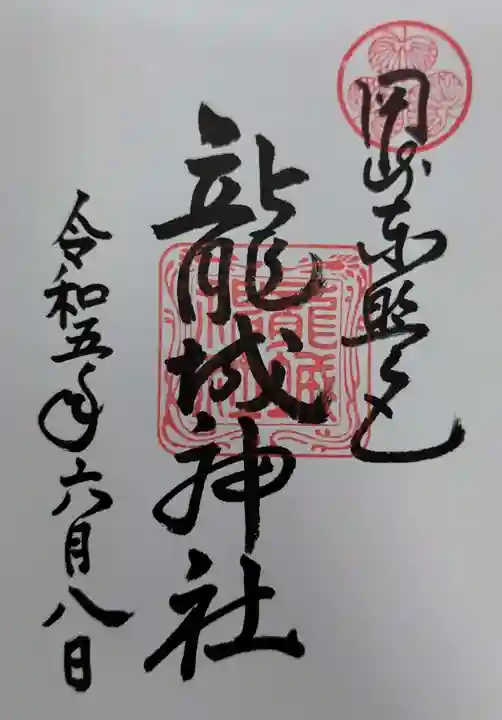 岡崎東照宮
龍城神社
令和五年六月八日